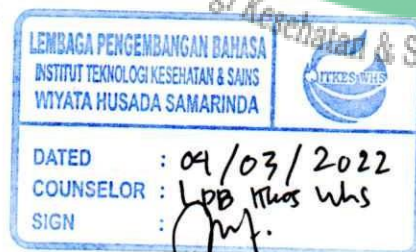 Kesehatan & S
LEMBAGA PENGEMBANGAN BAHASA
INSTITUT TEKNOLOGI KESEHATAN & SAINS
WIYATA HUSADA SAMARINDA
ITKES WHS
DATED : 04/03/2022
COUNSELOR : LPB ITKes Whs
SIGN :